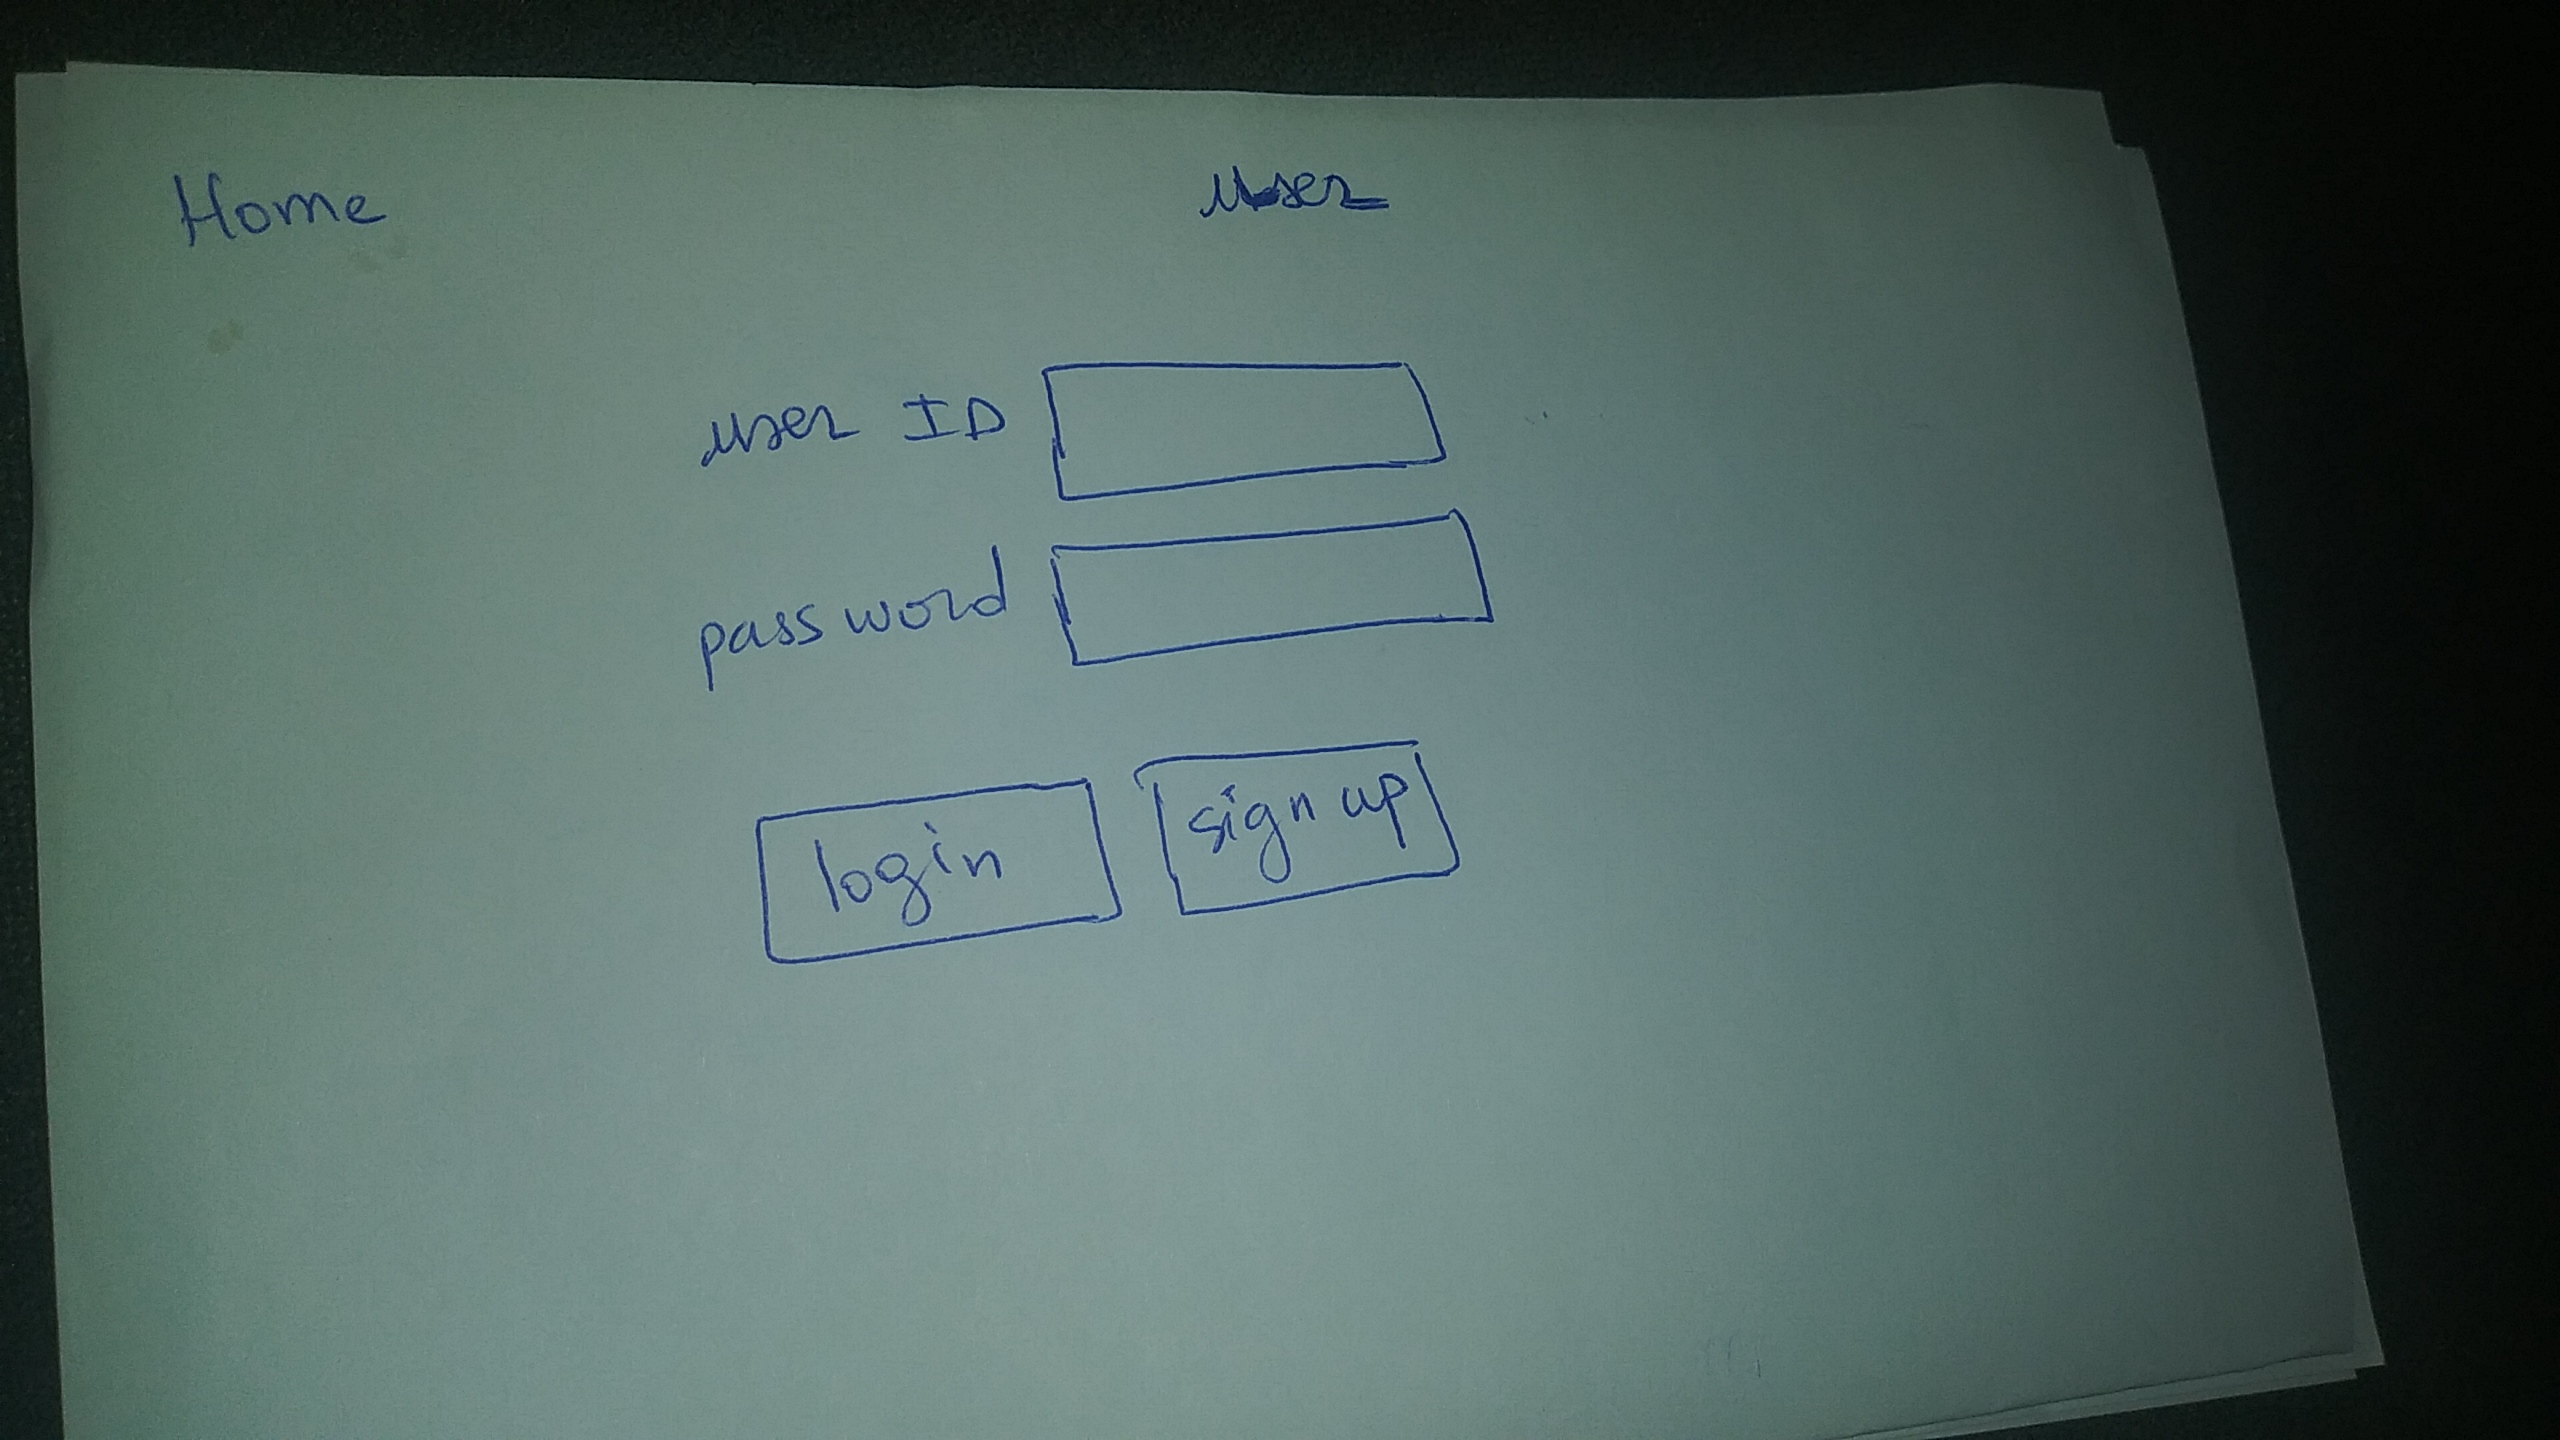 Home
User
User ID
password
login
sign up